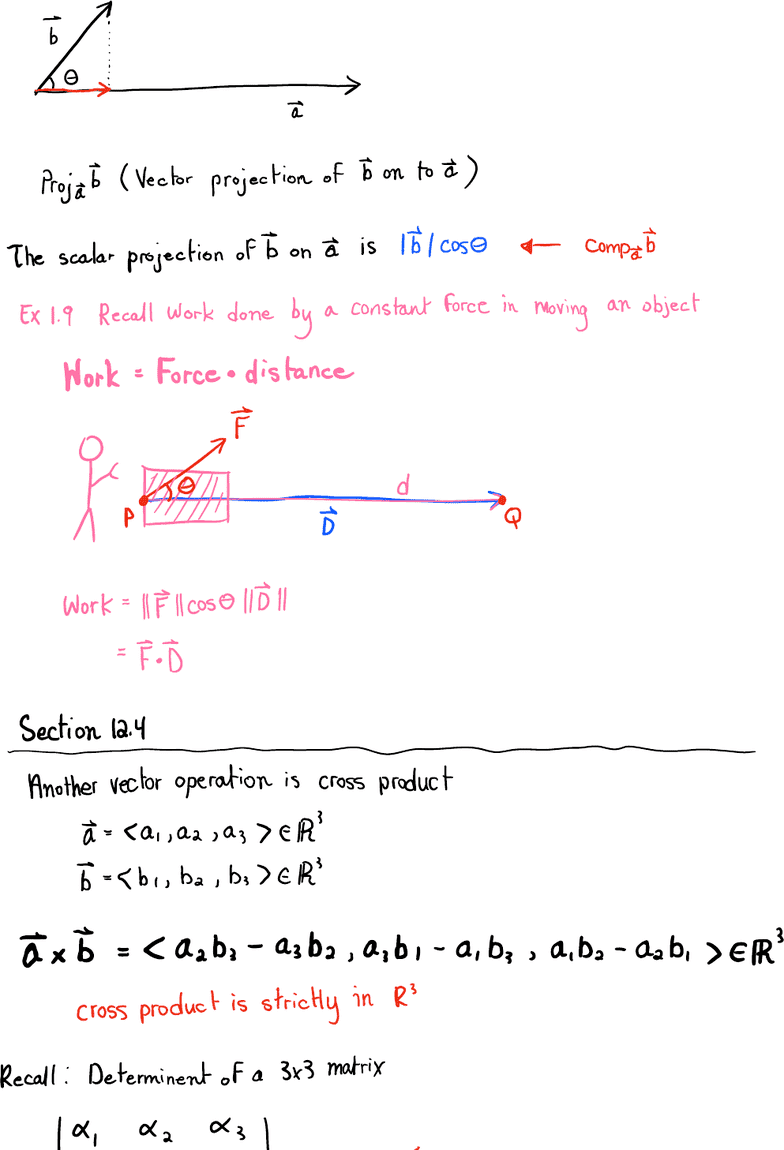 b⃗
θ
a⃗
Proj_a⃗ b⃗ (Vector projection of b⃗ on to a⃗)
The scalar projection of b⃗ on a⃗ is |b⃗|cosθ ← comp_a⃗ b⃗
Ex 1.9 Recall Work done by a constant force in moving an object
Work = Force • distance
F⃗
θ
d
P
D⃗
Q
Work = ||F⃗||cosθ||D⃗||
= F⃗•D⃗
Section 12.4
Another vector operation is cross product
a⃗ = <a₁, a₂, a₃> ∈ ℝ³
b⃗ = <b₁, b₂, b₃> ∈ ℝ³
a⃗ × b⃗ = <a₂b₃ - a₃b₂, a₃b₁ - a₁b₃, a₁b₂ - a₂b₁> ∈ ℝ³
cross product is strictly in ℝ³
Recall: Determinent of a 3x3 matrix
| α₁ α₂ α₃ |